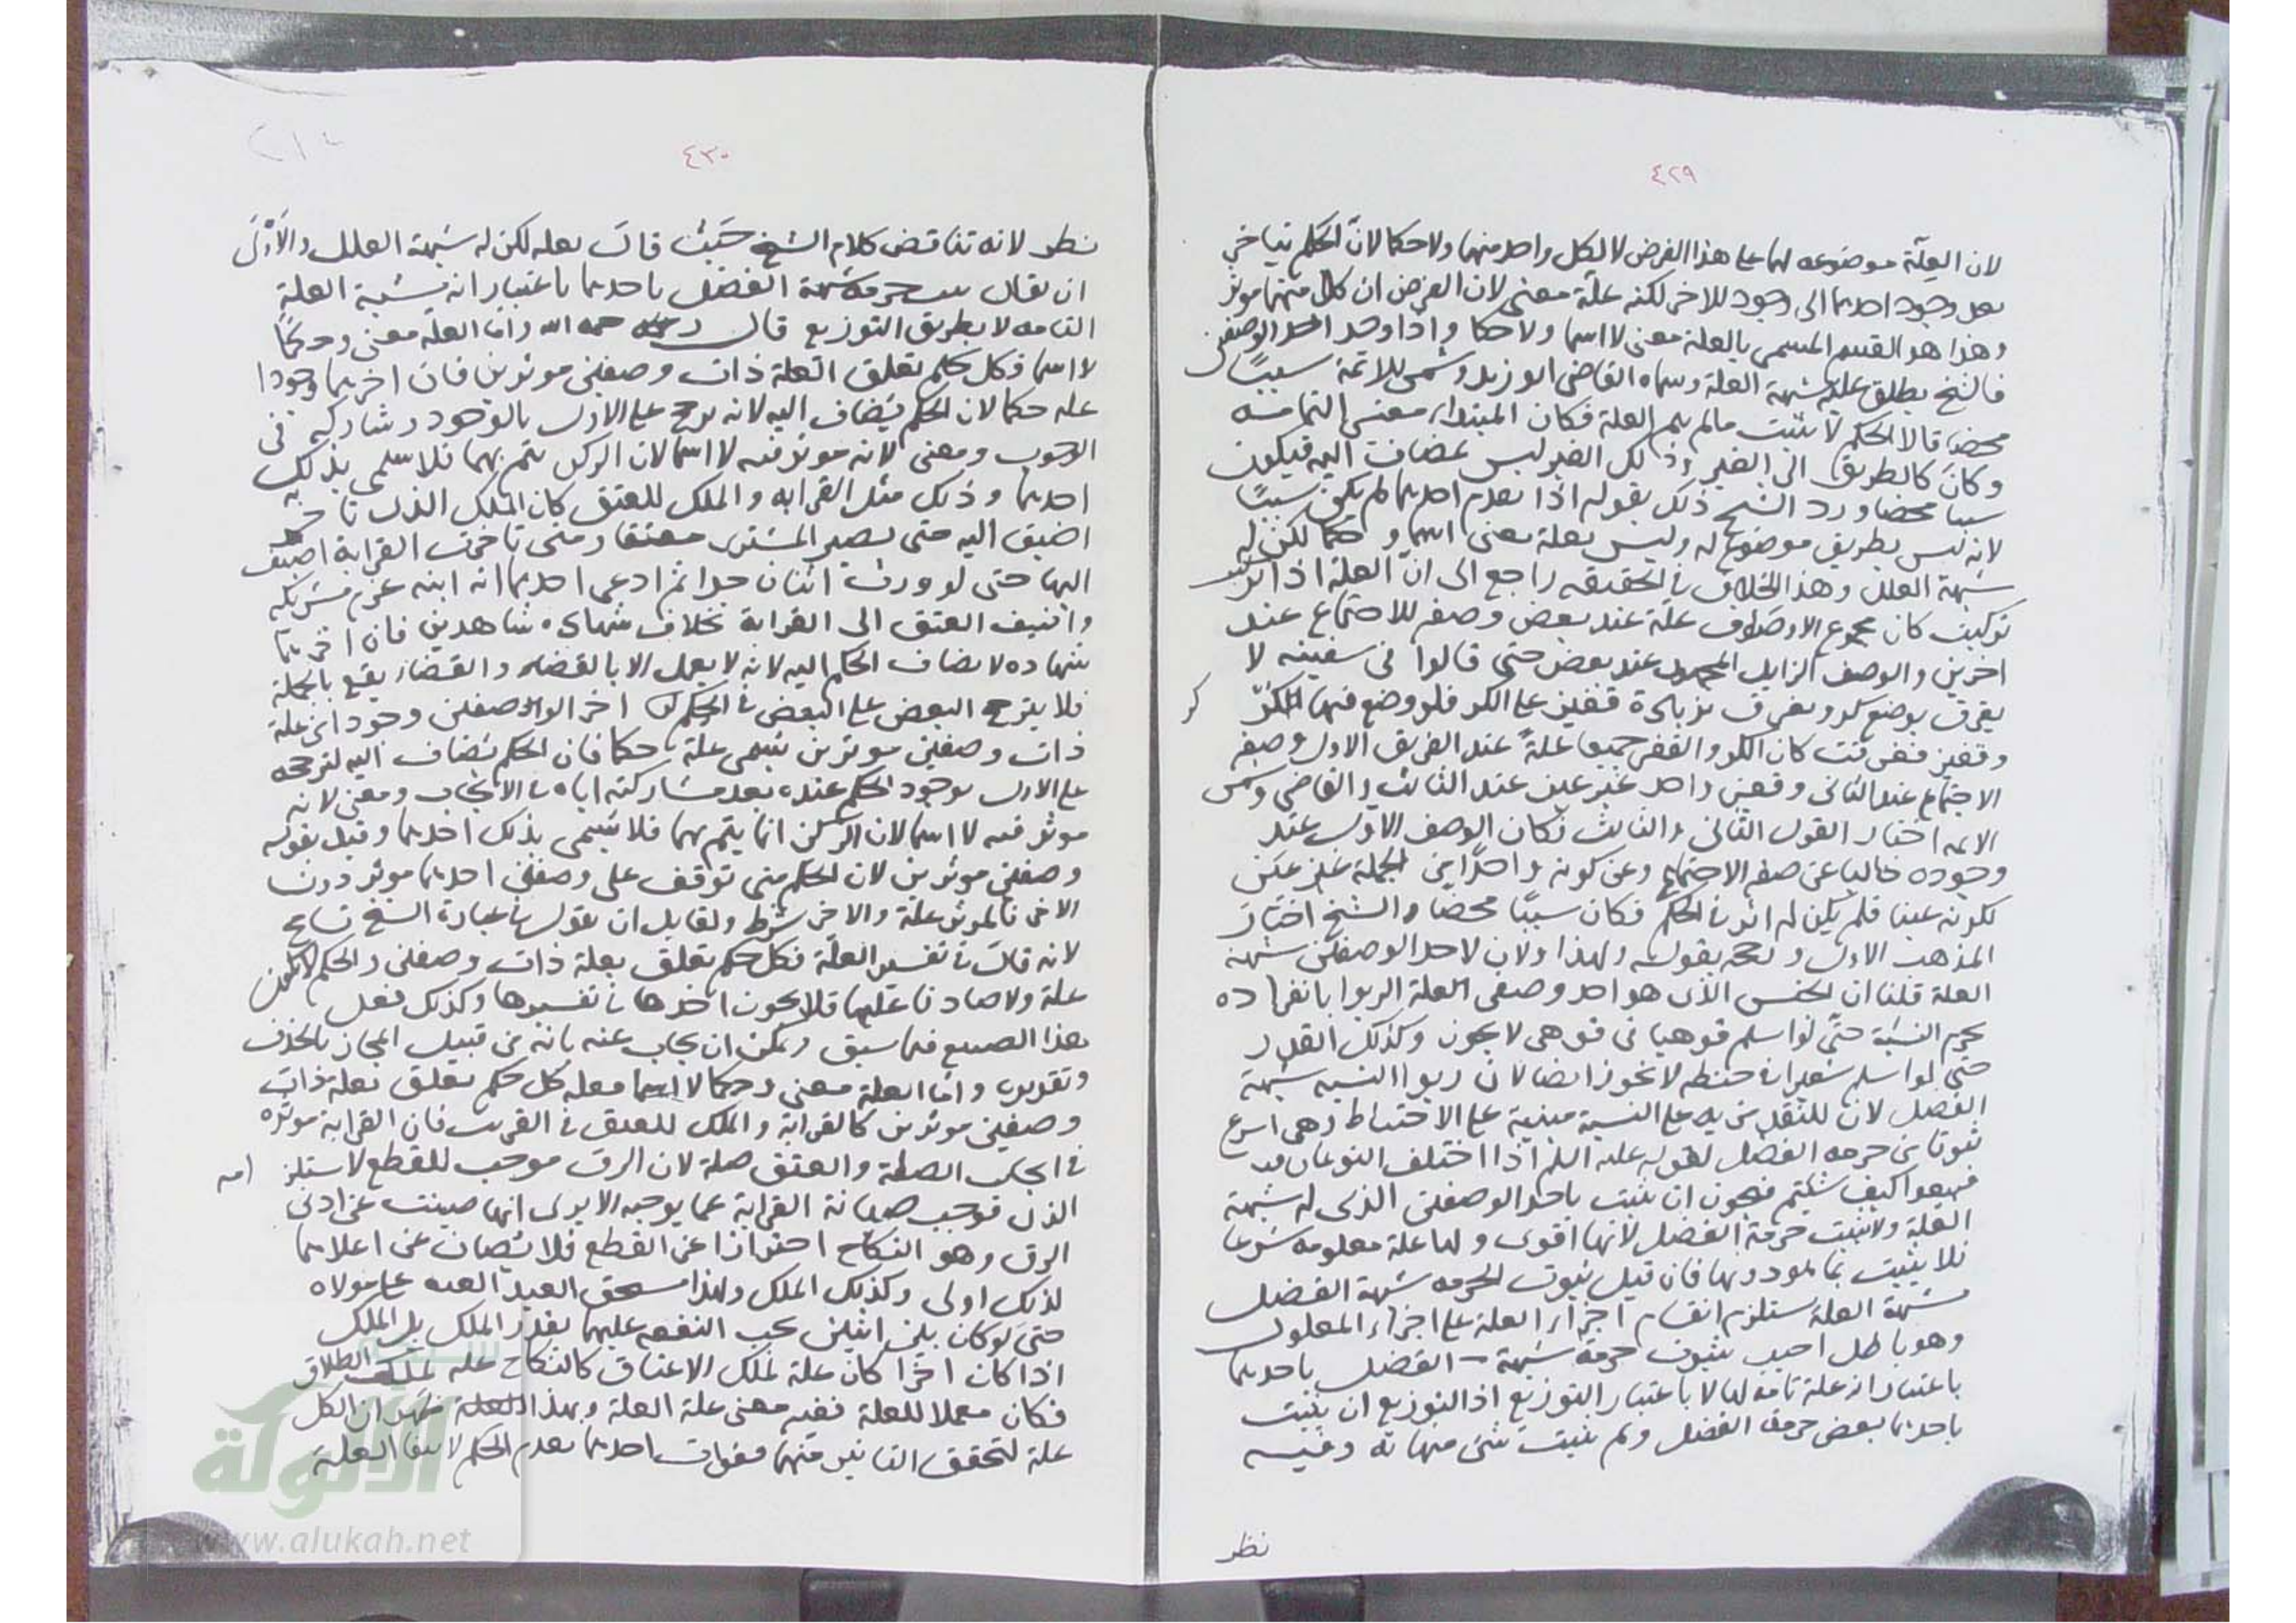 ٤٢٩
لان العلة موضوعه لهما على هذا الفرض لا لكل واحد منهما ولا حكما لان الحكم يتاخر
بعد وجود احدهما الى وجود للاخر لكنه علة معنى لان الفرض ان كلا منهما موثر
وهذا هو القسم المسمى بالعلة معنى لا اسما ولا حكما واذا وجد احد الوصفين
فالشيخ يطلق عليه شبهة العلة وسماه القاضى ابو زيد وشمس الائمة سببا
محضا قالا الحكم لا يثبت مالم يتم العلة فكان المبتدا، معنى التمامه
وكان كالطريق الى الغير وذلك الغير ليس بمضاف اليه فيكون
سببا محضا ورد الشيخ ذلك بقوله اذا تعدم احدهما لم يكن سببا
لانه ليس بطريق موضوع له وليس بعلة معنى اسما و حكما لكن له
شبهة العلل وهذا الخلاف فى الحقيقه راجع الى ان العلة اذا
تركبت كان مجموع الاوصاف علة عند بعض وصفه للاجتماع عند
اخرين والوصف الزايد المجهول عند بعض حتى قالوا فى سفينه لا
يغرق بوضع كر ويغرق بزيادة قفيز على الكر فلو وضع فيها الكر
كر
وقفيز فغرقت كان الكر والقفيز جميعا علة عند الفريق الاول وصفه
الاجتماع عند الثانى وقفيز واحد غير عين عند الثالث والقاضى وشمس
الايمه اختار القول الثانى والثالث فكان الوصف الاول عند
وجوده خاليا عن صفه الاجتماع وعن كونه واحدا من الجملة غير عين
لكونه عينا فلم يكن له اثر فى الحكم فكان سببا محضا والشيخ اختار
المذهب الاول و بقوله ولهذا ولان لاحد الوصفين شبهة
العلة قلنا ان الجنس الذى هو احد وصفى العلة الربوا بانفراده
يحرم النسية حتى لو اسلم قوهيا فى قوهى لا يجوز وكذلك القدر
حتى لو اسلم شعيرا فى حنطه لا يجوز ايضا لان ربوا النسيه شبهة
الفضل لان للنقد مزيه على النسية مبنية على الاحتياط وهى اسرع
ثبوتا من حرمه الفضل لقوله عليه السلم اذا اختلف النوعان
فبيعوا كيف شئتم فيجوز ان يثبت باحد الوصفين الذى له شبهة
العلة ولا يثبت حرمة الفضل لانها اقوى ولها علة معلومه شرعا
فلا يثبت بما هو دونها فان قيل ثبوت الحرمه شبهة الفضل
شبهة العلة يستلزم انقسام اجزاء العلة على اجزاء المعلول
وهو باطل اجيب بثبوت حرمة شبهة الفضل باحدهما
باعتبار انه علة تامه لها لا باعتبار التوزيع اذ التوزيع ان يثبت
باحدهما بعض حرمة الفضل ولم يثبت شئ منها به وفيه
نظر
٤٣٠
نظر لانه تناقض كلام الشيخ حيث قال بعله لكن له شبهة العلل والاولى
ان يقال حرمة شبهة الفضل باحدهما باعتبار انه شبهة العلة
التامه لا بطريق التوزيع قال رحمه الله واما العلة معنى وحكما
لا اسما فكل حكم تعلق العلة ذات وصفين موثرين فان اخرهما وجودا
علة حكما لان الحكم يضاف اليه لانه يرجح على الاول بالوجود وشاركه فى
الوجوب ومعنى لانه موثر فيه لا اسما لان الركن يتم بهما فلا يسمى بذلك
احدهما وذلك مثل القرابه والملك للعتق كان الملك الذى تاخر
اضيف اليه حتى يصير المشترى معتقا ومتى تاخرت القرابة اضيف
اليها حتى لو ورث اثنان عبدا ثم ادعى احدهما انه ابنه غرم شريكه
واضيف العتق الى القرابة بخلاف شهادة شاهدين فان اخرهما
شهاده لا يضاف الحكم اليه لانه لا يعمل الا بالقضاء والقضاء يقع بالجملة
فلا يترجح البعض على البعض فى الحكم اخر الوصفين وجودا من علة
ذات وصفين موثرين تسمى علة حكما فان الحكم يضاف اليه لترجحه
على الاول بوجود الحكم عنده بعد مشاركته اياه فى الايجاب ومعنى لانه
موثر فيه لا اسما لان الركن انما يتم بهما فلا يسمى بذلك احدهما وقيد بقوله
وصفين موثرين لان الحكم متى توقف على وصفين احدهما موثر دون
الاخر فالموثر علة والاخر شرط ولقايل ان يقول فى عبارة الشيخ تسامح
لانه قال فى تفسير العلة فكل حكم تعلق بعلة ذات وصفين والحكم لا يكون
علة ولا صادقا عليها فلا يجوز اخذها فى تفسيرها وكذلك فعل
هذا الصنيع فيما سبق ويمكن ان يجاب عنه بانه من قبيل المجاز بالحذف
وتقديره واما العلة معنى وحكما لا اسما فعلة كل حكم تعلق بعلة ذات
وصفين موثرين كالقرابة والملك للعتق فى القريب فان القرابة موثره
فى ايجاب الصلة والعتق صلة لان الرق موجب للقطع لاستلزامه
الذل فوجب صيانة القرابة عما يوجبه الا يرى انها صينت عن ادنى
الرق وهو النكاح احترازا عن القطع فلا يصان عن اعلاهما
لذلك اولى وكذلك الملك ولهذا يستحق العبد النفقه على مولاه
حتى لو كان بين اثنين يجب النفقه عليهما بقدر الملك بل الملك
اذا كان اخرا كان علة لملك الاعتاق كالنكاح علة لملك الطلاق
فكان مكملا للعلة ففيه معنى علة العلة وبهذا ظهر ان الكل
علة لتحقق التاثير منهما فبفوات احدهما يعدم الحكم لانتفا العلة
الألوكة
www.alukah.net